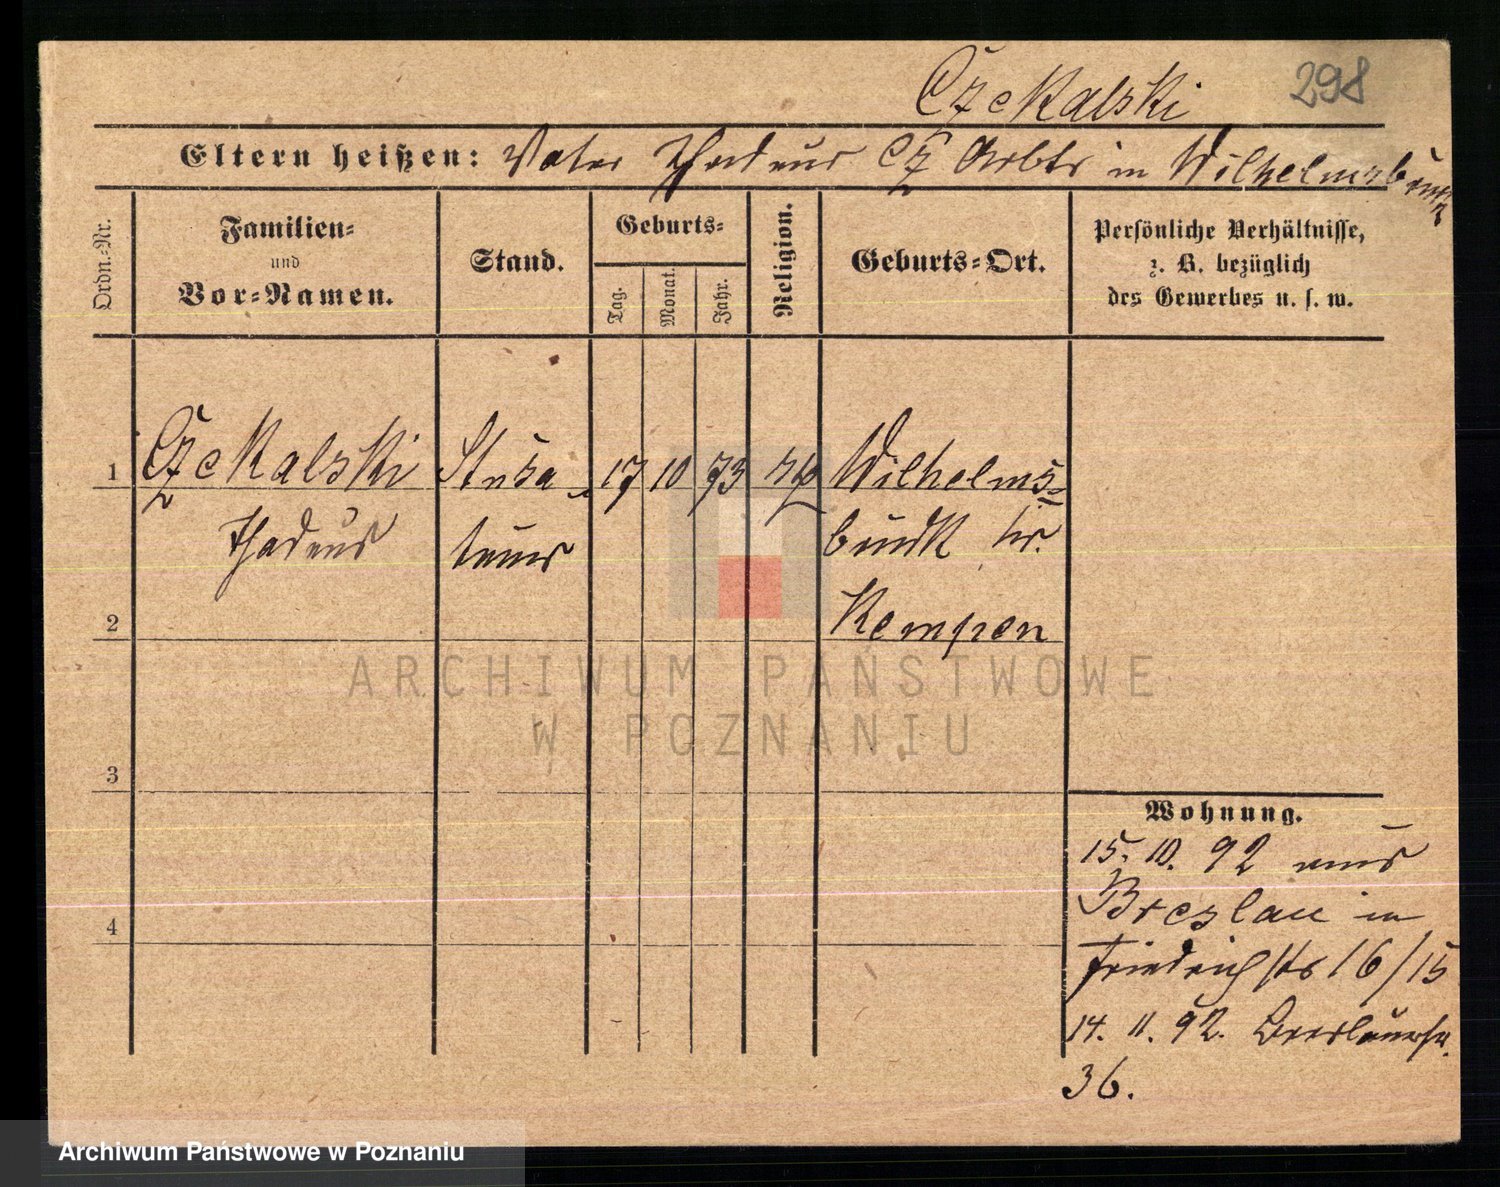 Czekalski 298
Eltern heißen: Vater Thadeus Cz Arbtr in Wilhelmsbruck
Ordn.-Nr.
Familien-
und
Vor-Namen.
Stand.
Geburts-
Tag.
Monat.
Jahr.
Religion.
Geburts-Ort.
Persönliche Verhältnisse,
z. B. bezüglich
des Gewerbes u. s. w.
1 Czekalski 17 10 73 Wilhelms-
Thadeus kr.
2 Kempen
ARCHIWUM PAŃSTWOWE
W POZNANIU
3
Wohnung.
15. 10. 92 aus
4 Breslau in
Friedrichstr 16/15
14. 11. 92. Breslauerstr.
36.
Archiwum Państwowe w Poznaniu